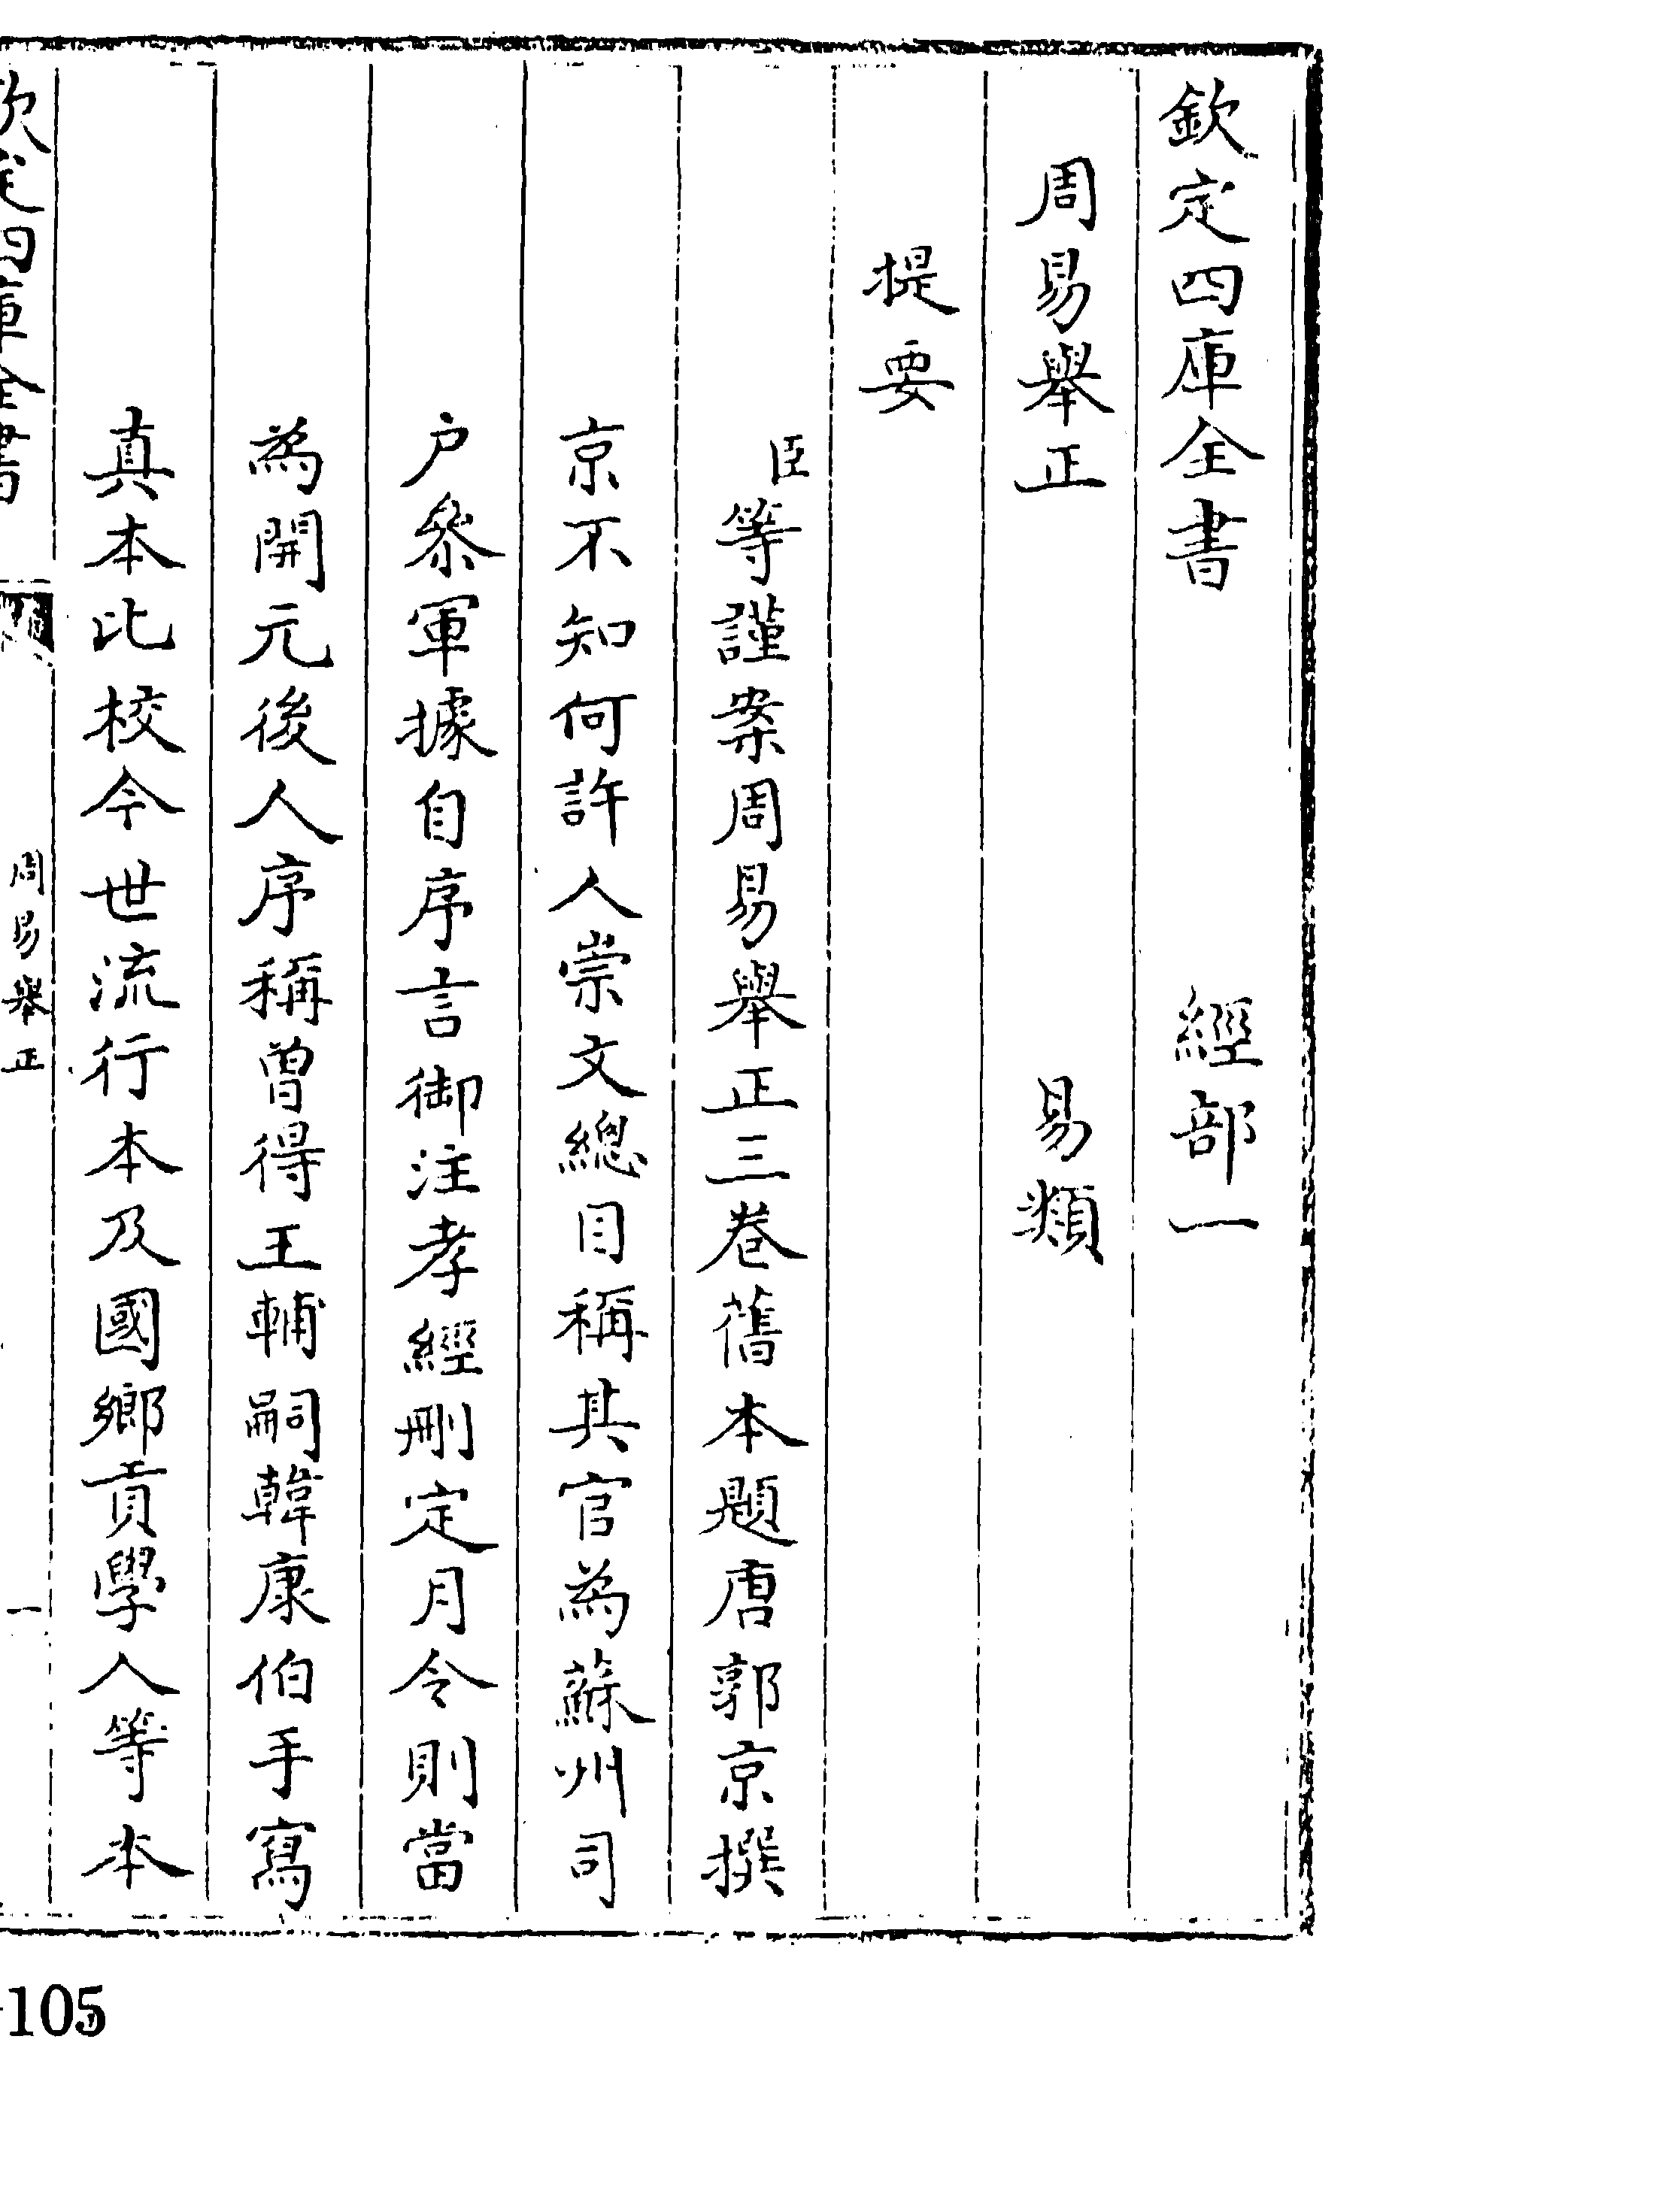 欽定四庫全書　經部一
周易舉正　易類
提要
臣等謹案周易舉正三卷舊本題唐郭京撰
京不知何許人崇文總目稱其官為蘇州司
户參軍據自序言御注孝經刪定月令則當
為開元後人序稱曾得王輔嗣韓康伯手寫
真本比校今世流行本及國鄉貢學人等本
欽定四庫全書
周易舉正
一
105